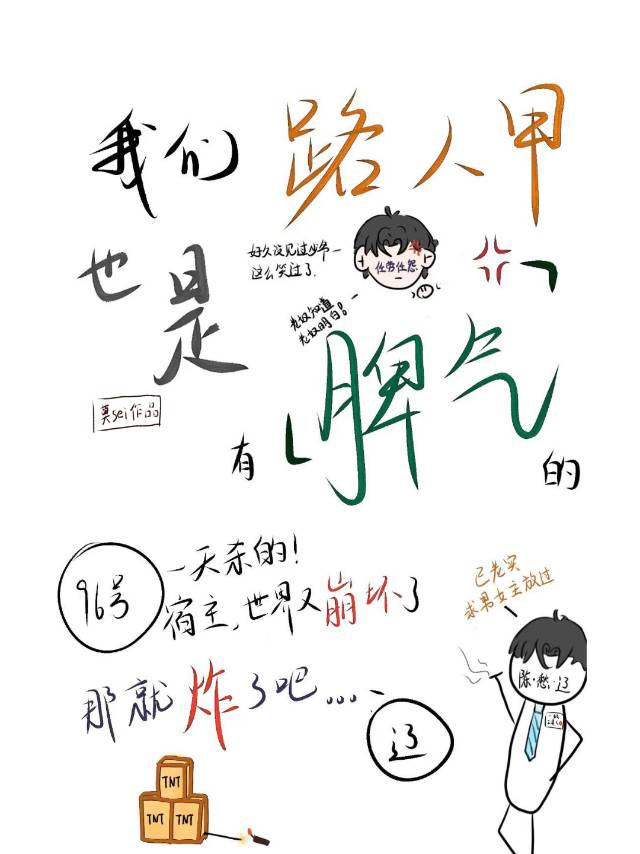 我们路人甲
也是
好久没见过少爷
这么笑过了
任劳任怨
老奴知道
老奴明白!
莫sei作品
有「脾气」的
96号
天杀的!
宿主,世界又崩坏了
已老实
求男女主放过
陈·愁·辽
那就炸了吧...
辽
TNT
TNT TNT